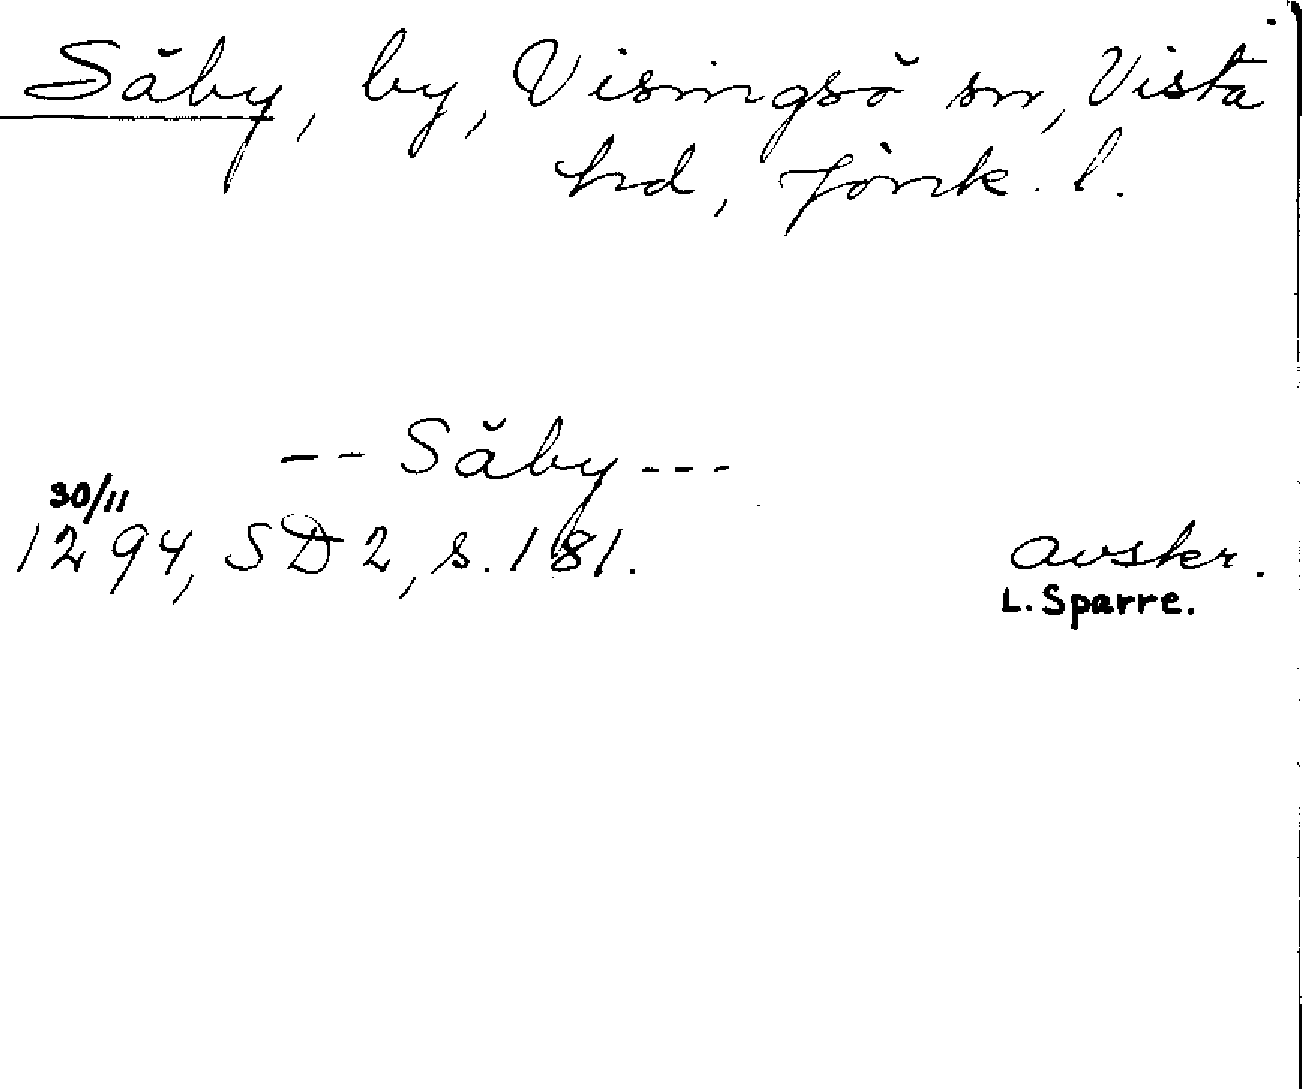 Säby, by, Visingsö sn, Vista
hd, Jönk. l.
-- Säby ---
30/11
1294, SD 2, s. 181.
avskr.
L. Sparre.